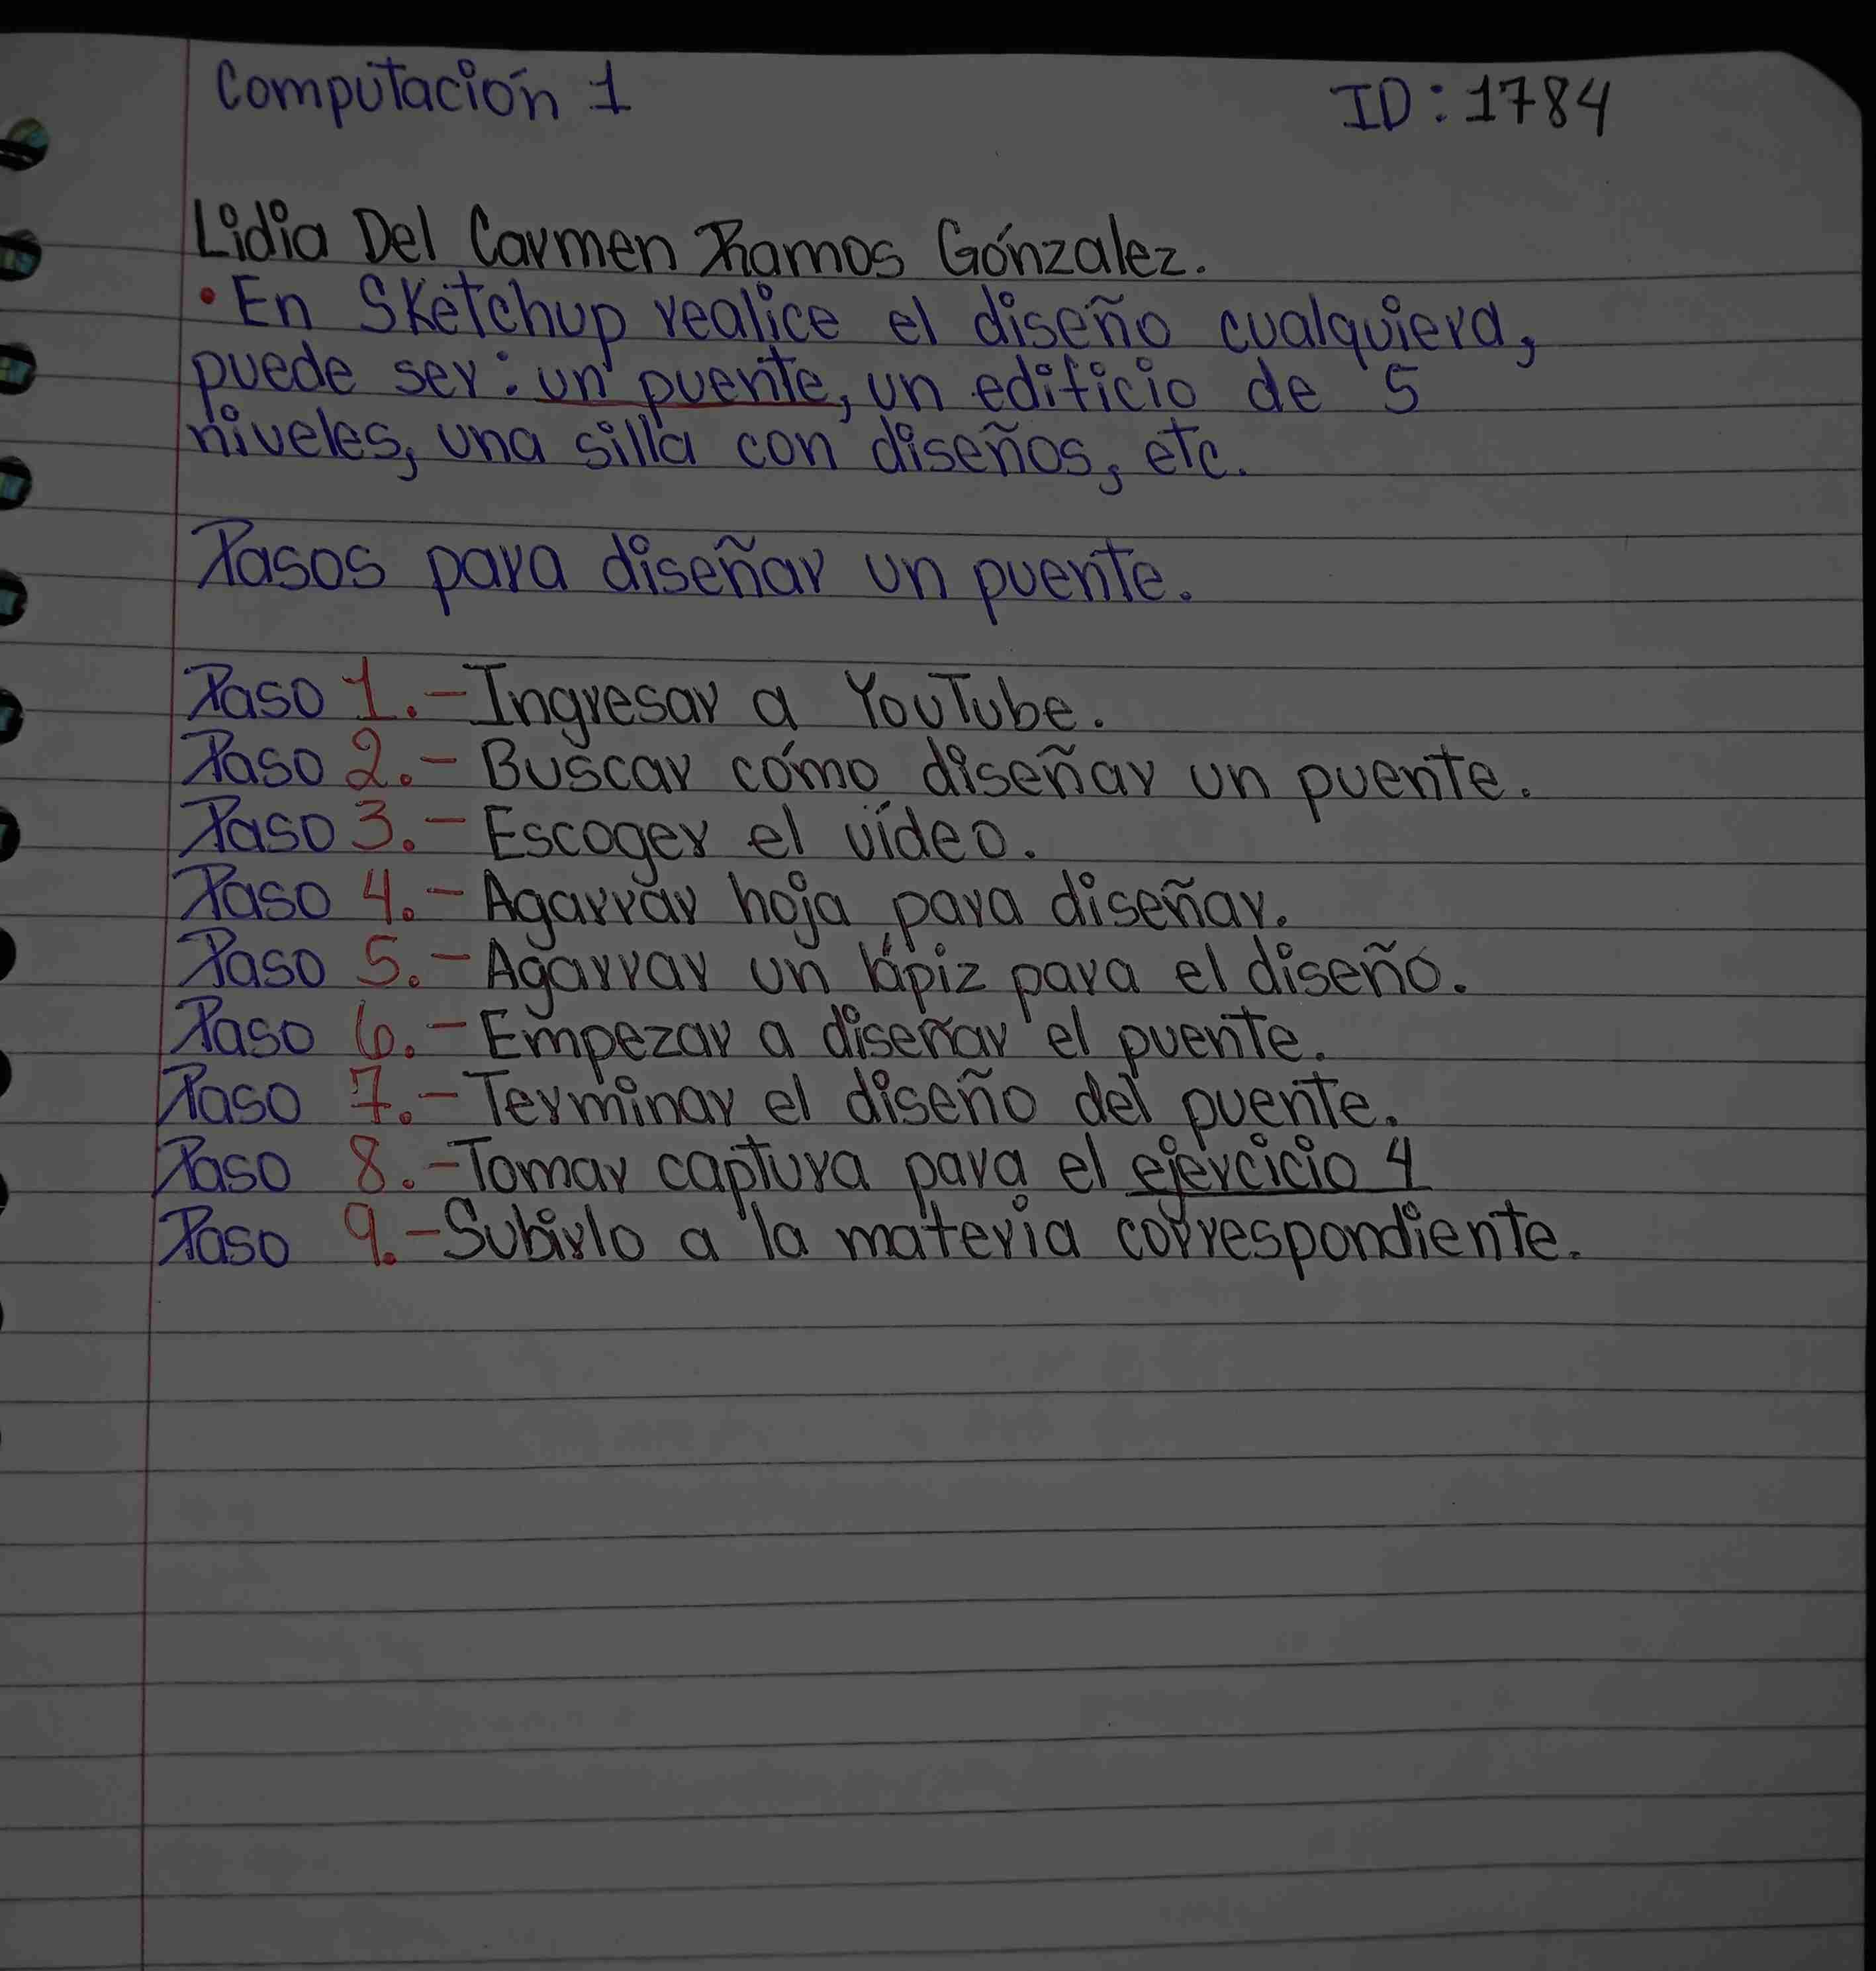 Computación 1
ID: 1784
Lidia Del Carmen Ramos Gónzalez.
• En Sketchup realice el diseño cualquiera,
puede ser: un puente, un edificio de 5
niveles, una silla con diseños, etc.
Pasos para diseñar un puente.
Paso 1.- Ingresar a YouTube.
Paso 2.- Buscar cómo diseñar un puente.
Paso 3.- Escoger el vídeo.
Paso 4.- Agarrar hoja para diseñar.
Paso 5.- Agarrar un lápiz para el diseño.
Paso 6.- Empezar a diseñar el puente.
Paso 7.- Terminar el diseño del puente.
Paso 8.- Tomar captura para el ejercicio 4
Paso 9.- Subirlo a la materia correspondiente.